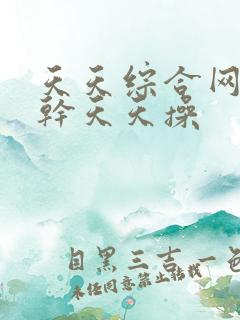 天天综合网
幹天天操
目黑三吉一色
未任同意禁止转载